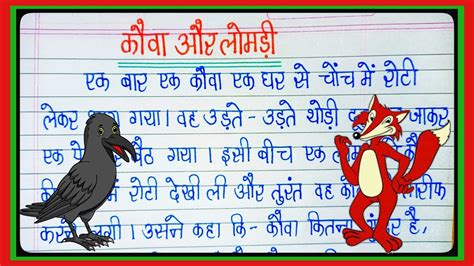 कौवा और लोमड़ी
एक बार एक कौवा एक घर से चोंच में रोटी
लेकर गया। वह उड़ते-उड़ते थोड़ी जाकर
एक बैठ गया। इसी बीच एक
में रोटी देखी ली और तुरंत वह
उसने कहा कि- कौवा कितना है,